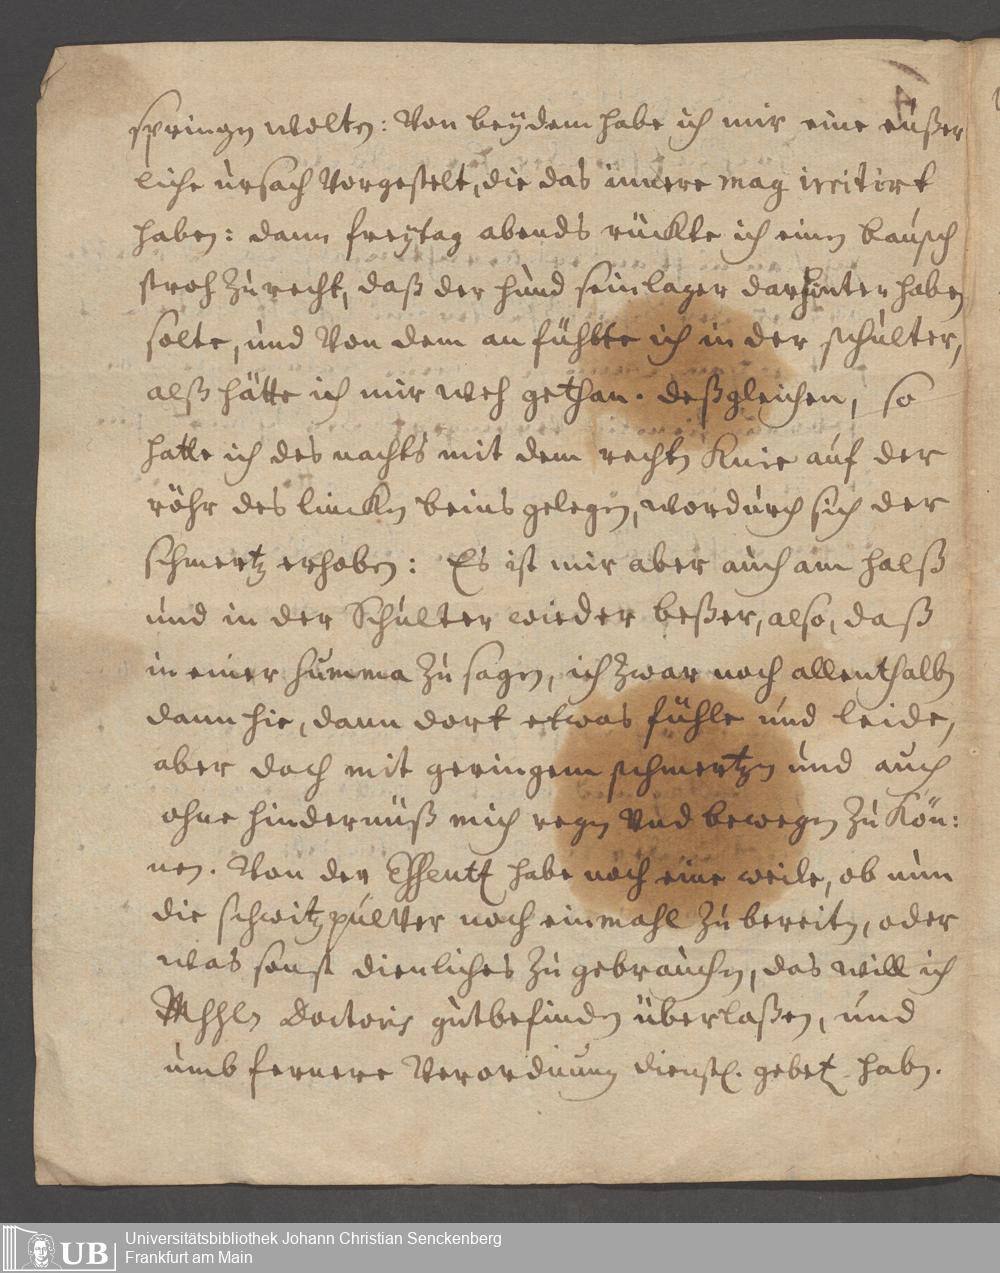 springen wolten: Von beydem habe ich mir eine eußer
liche ursach Vorgestelt, die das innere mag irritirt
haben: dann freytag abends rückte ich einen bausch
stroh zu recht, daß der hund sein lager darhinter haben
solte, und Von dem an fühlte ich in der schulter,
alß hätte ich mir weh gethan. deßgleichen, so
hatte ich des nachts mit dem rechten Knie auf der
röhr des lincken beins gelegen, wordurch sich der
schmertz erhoben: Es ist mir aber auch am halß
und in der Schulter wieder beßer, also, daß
in einer summa zu sagen, ich zwar noch allenthalben
dann hie, dann dort etwas fühle und leide,
aber doch mit geringem schmertzen und auch
ohne hindernüß mich regen Und bewegen zu Kön:
nen. Von der Essentz habe noch eine weile, ob nun
die schwitzpulver noch einmahl zu bereiten, oder
was sonst dienliches zu gebrauchen, das will ich
Doctoris gutbefinden überlaßen, und
umb fernere Verordnung dienstl. gebet. haben.
Universitätsbibliothek Johann Christian Senckenberg
Frankfurt am Main
UB